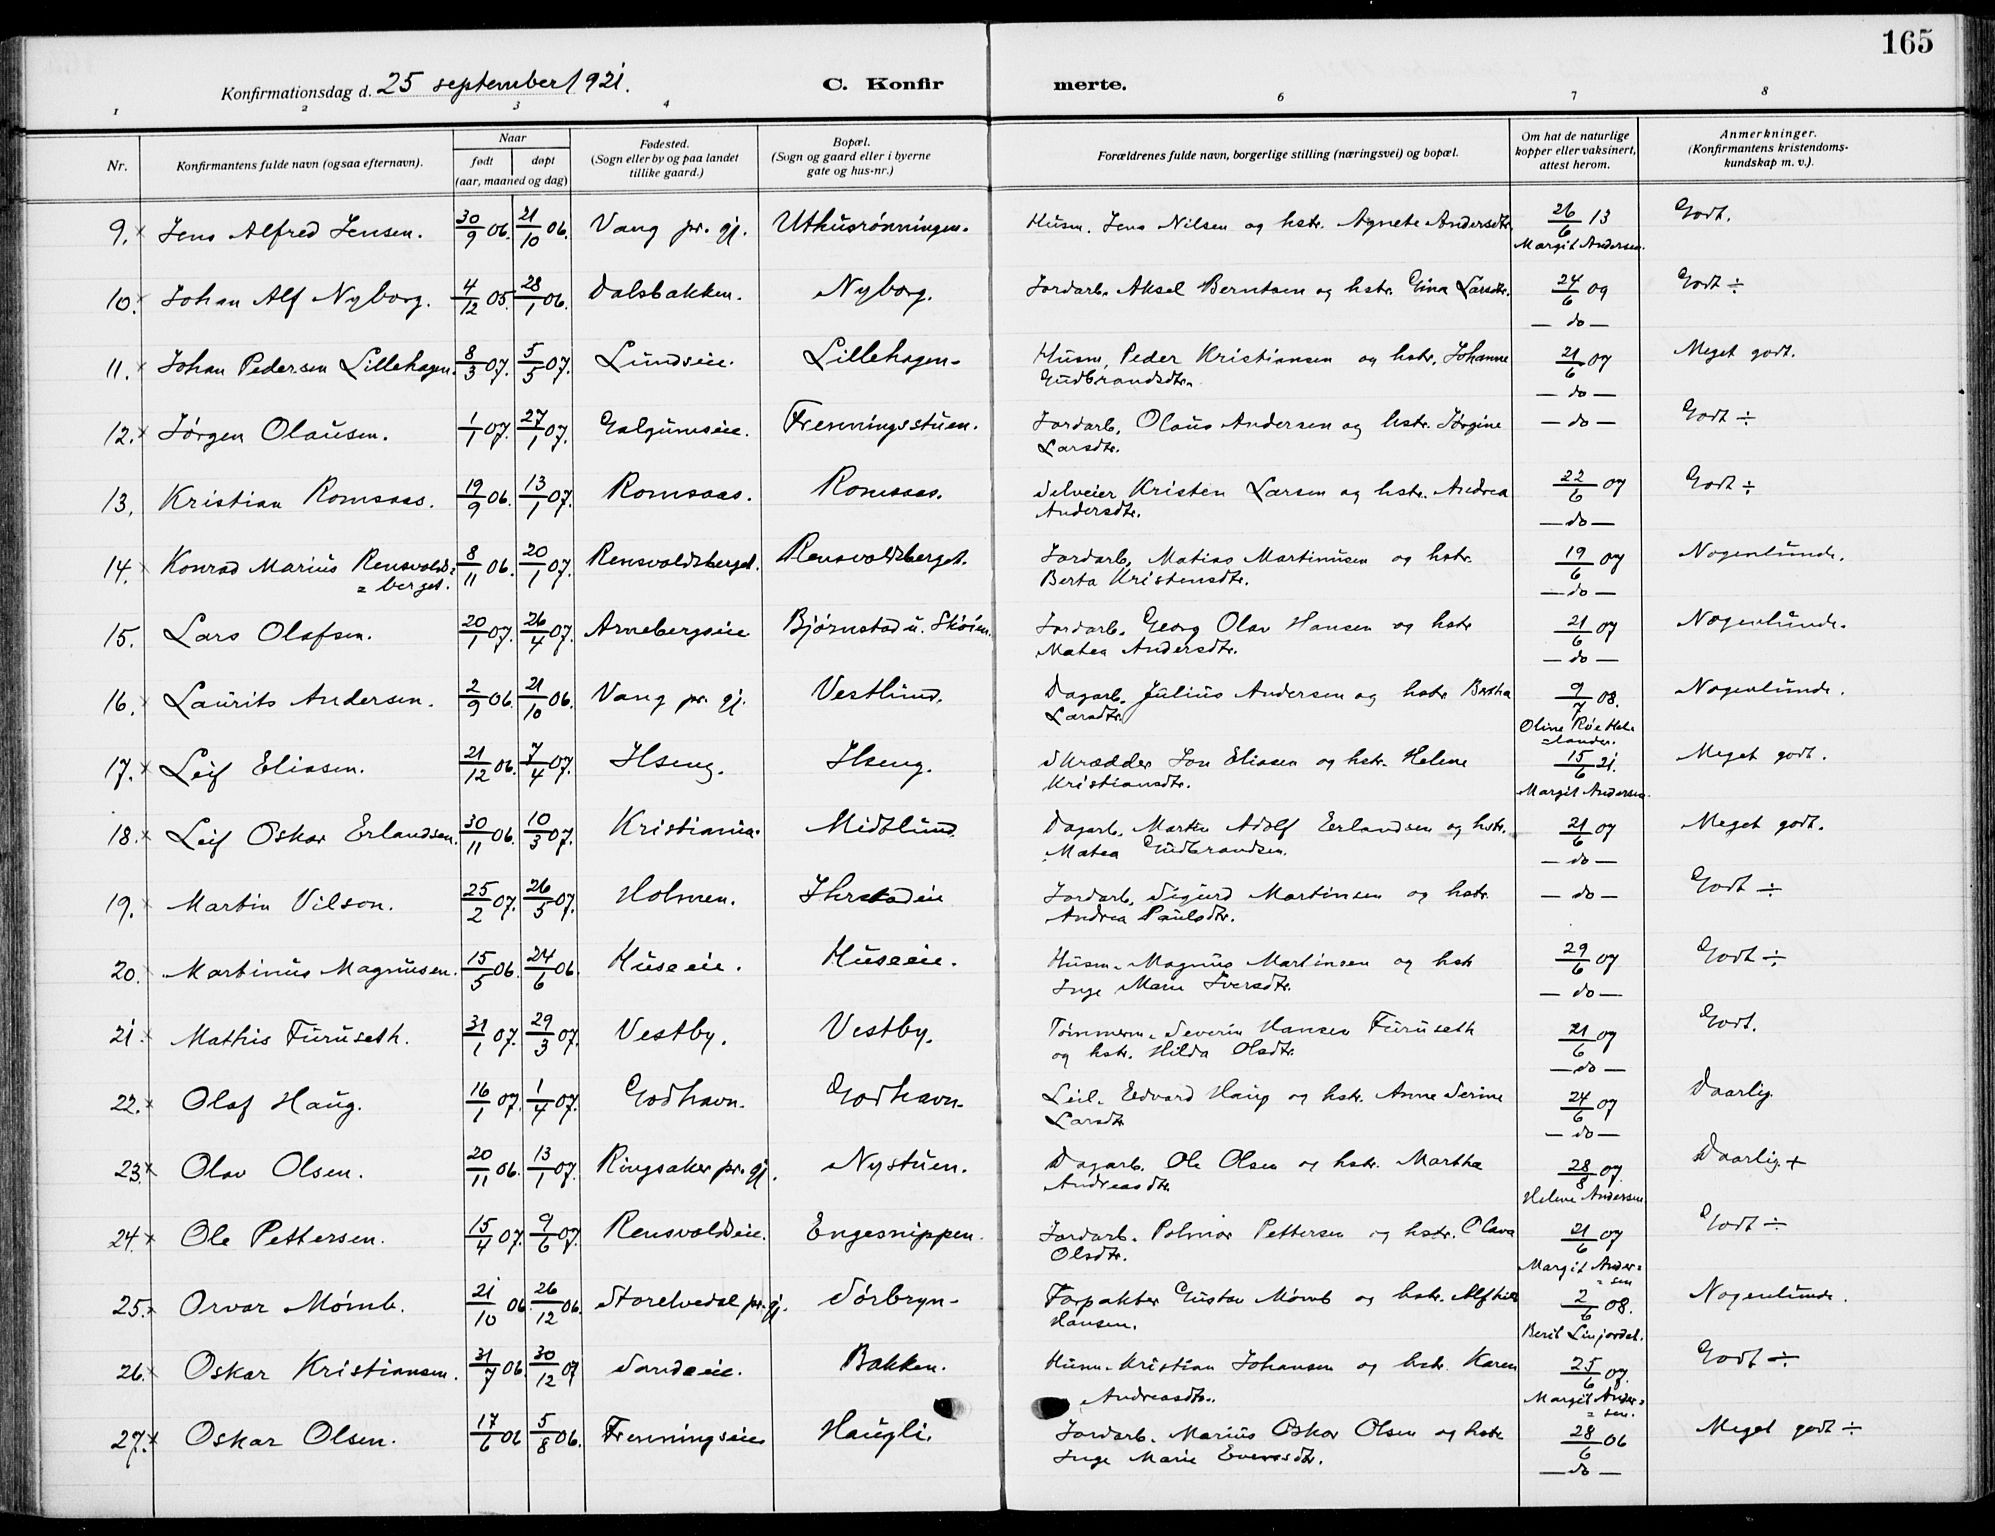 165
Konfirmationsdag d. 25 september 1921. C. Konfirmerte.
1 2 3 4 6 7 8
Nr. Konfirmantens fulde navn (ogsaa efternavn). Naar født døpt (aar, maaned og dag) Fødested. (Sogn eller by og paa landet tillike gaard.) Bopæl. (Sogn og gaard eller i byerne gate og hus-nr.) Forældrenes fulde navn, borgerlige stilling (næringsvei) og bopæl. Om hat de naturlige kopper eller vaksinert, attest herom. Anmerkninger. (Konfirmantens kristendomskundskap m. v.).
9. x Jens Alfred Jensen. 30/9 06. 21/10 06. Vang pr. gj. Uthusrønningen. Husm. Jens Nilsen og hstr. Agnete Andersdtr. 26/6 13 Godt.
Margit Andersen.
10. x Johan Alf Nyborg. 4/12 05. 28/1 06. Dalsbakken. Nyborg. Jordarb. Aksel Berntsen og hstr. Gina Larsdtr. 24/6 09 Godt ÷
— do —
11. x Johan Pedersen Lillehagen. 8/3 07. 5/5 07. Lundseie. Lillehagen. Husm. Peder Kristiansen og hstr. Johanne 21/6 07 Meget godt.
Gudbrandsdtr. — do —
12. x Jørgen Olausen. 1/1 07. 27/1 07. Galgumseie. Frenningsstuen. Jordarb. Olaus Andersen og hstr. Jørgine — do — Godt ÷
Larsdtr.
13. Kristian Romsaas. 19/9 06. 13/1 07. Romsaas. Romsaas. Selveier Kristen Larsen og hstr. Andrea 22/6 07 Godt ÷
Andersdtr. — do —
14. Konrad Marius Rensvolds= 8/11 06. 20/1 07. Rensvoldsberget. Rensvoldsberget. Jordarb. Matias Martinusen og hstr. 19/6 07 Nogenlunde.
=berget. Berta Kristensdtr. — do —
15. Lars Olafsen. 20/1 07. 26/4 07. Arnebergseie Bjørnstad u. Skøien. Jordarb. Georg Olav Hansen og hstr 21/6 07 Nogenlunde.
Matea Andersdtr. — do —
16. x Laurits Andersen. 2/9 06. 21/10 06. Vang pr. gj. Vestlund. Dagarb. Julius Andersen og hstr Bertha 9/7 08. Nogenlunde.
Larsdtr. Oline Røe Hel=
=lander.
17. x Leif Eliasen. 21/12 06. 7/4 07. Ilseng. Ilseng. Skrædder Jon Eliasen og hstr. Helene 15/6 21. Meget godt.
Kristiansdtr. Margit Andersen.
18. x Leif Oskar Erlandsen. 30/11 06. 10/3 07. Kristiania. Midtlund. Dagarb. Martin Adolf Erlandsen og hstr. 21/6 07 Meget godt.
Matea Gudbrandsen. — do —
19. x Martin Vilson. 25/2 07. 26/5 07. Holmen. Jordarb. Sigurd Martinsen og hstr. — do — Godt ÷
Andrea Paulsdtr.
20. Martinus Magnusen. 15/5 06. 24/6 06. Huseeie. Huseeie. Husm. Magnus Martinsen og hstr 29/6 07 Godt ÷
Inge Marie Iversdtr. — do —
21. x Mathis Furuseth. 31/1 07. 29/3 07. Vestby. Vestby. Tømmerm. Severin Hansen Furuseth 21/6 07 Godt.
og hstr. Hilda Olsdtr. — do —
22. x Olaf Haug. 16/1 07. 1/4 07. Godhavn. Godhavn. Leil. Edvard Haug og hstr. Anne Serine 24/6 07 Daarlig.
Larsdtr — do —
23. x Olav Olsen. 20/11 06. 13/1 07. Ringsaker pr. gj. Nystuen. Dagarb. Ole Olsen og hstr. Martha 28/8 07. Daarlig. +
Andreasdtr. Helene Andersen
24. x Ole Pettersen. 15/4 07. 9/6 07. Rensvoldseie. Engesnippen. Jordarb. Polmar Pettersen og hstr. Olava 21/6 07 Godt ÷
Olsdtr. Margit Ander=
=sen
25. x Orvar Mømb. 21/10 06. 26/12 06. Storelvedal pr. gj. Sørbryn. Forpakter Gustav Mømb og hstr. Alfhild 2/6 08. Nogenlunde.
Hansen. Berit Linjordet.
26. x Oskar Kristiansen. 31/7 06. 30/12 07 Sandseie. Bakken. Husm. Kristian Johansen og hstr. Karen 25/6 07. Godt ÷
Andreasdtr. Margit Ander=
=sen.
27. x Oskar Olsen. 17/6 06 5/8 06. Frenningseie Haugli. Jordarb. Marius Oskar Olsen og hstr. 28/6 06 Meget godt ÷
Inge Marie Evensdtr. — do —